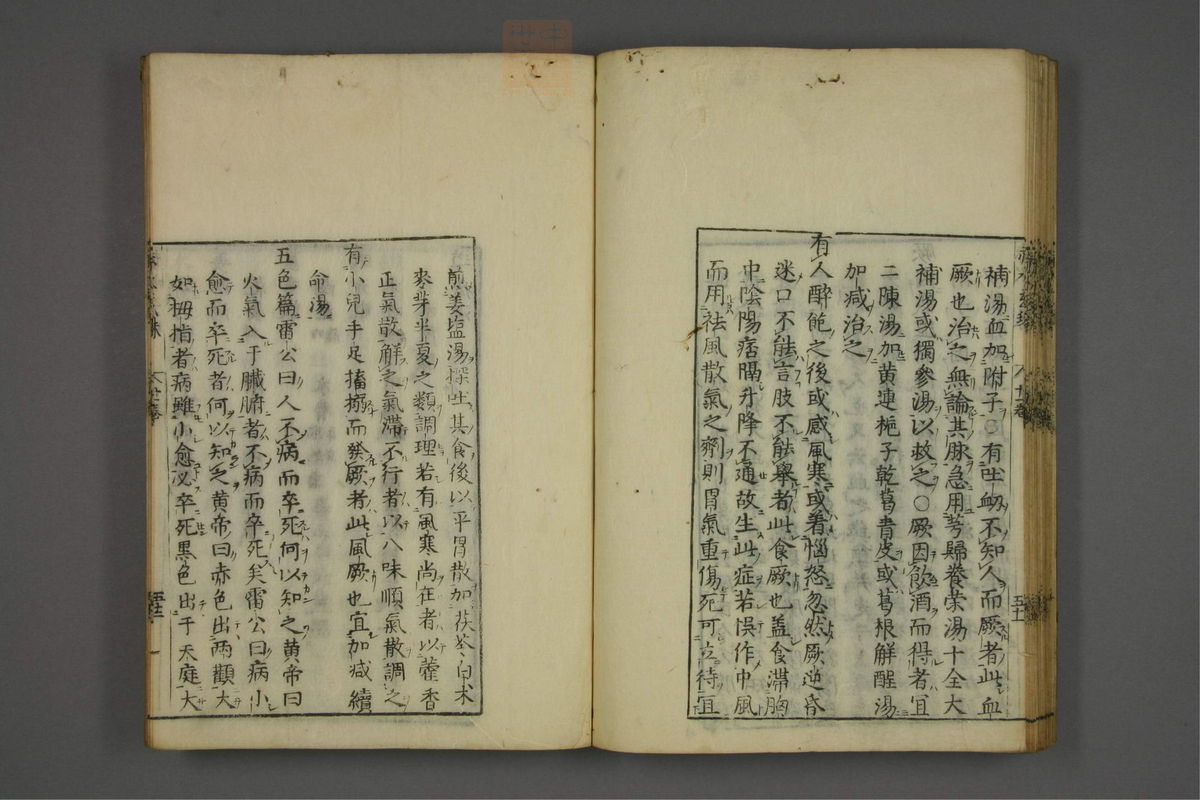 補湯血加附子○有吐衂不知人而厥者此血
厥也治之無論其脉急用芎歸養榮湯十全大
補湯或獨參湯以救之○厥因飲酒而得者宜
二陳湯加黄連梔子乾葛青皮或葛根解醒湯
加減治之
有人醉飽之後或感風寒或着惱怒忽然厥逆昏
迷口不能言肢不能舉者此食厥也盖食滞胸
中陰陽痞隔升降不通故生此症若悞作中風
而用祛風散氣之劑則胃氣重傷死可立待宜
煎姜塩湯探吐其食後以平胃散加茯苓白术
麥芽半夏之類調理若有風寒尚在者以藿香
正氣散解之氣滞不行者以八味順氣散調之
有小兒手足搐搦而發厥者此風厥也宜加减續
命湯
五色篇雷公曰人不病而卒死何以知之黄帝曰
火氣入于臓腑者不病而卒死矣雷公曰病小
愈而卒死者何以知之黄帝曰赤色出兩顴大
如拇指者病雖小愈必卒死黒色出于天庭大